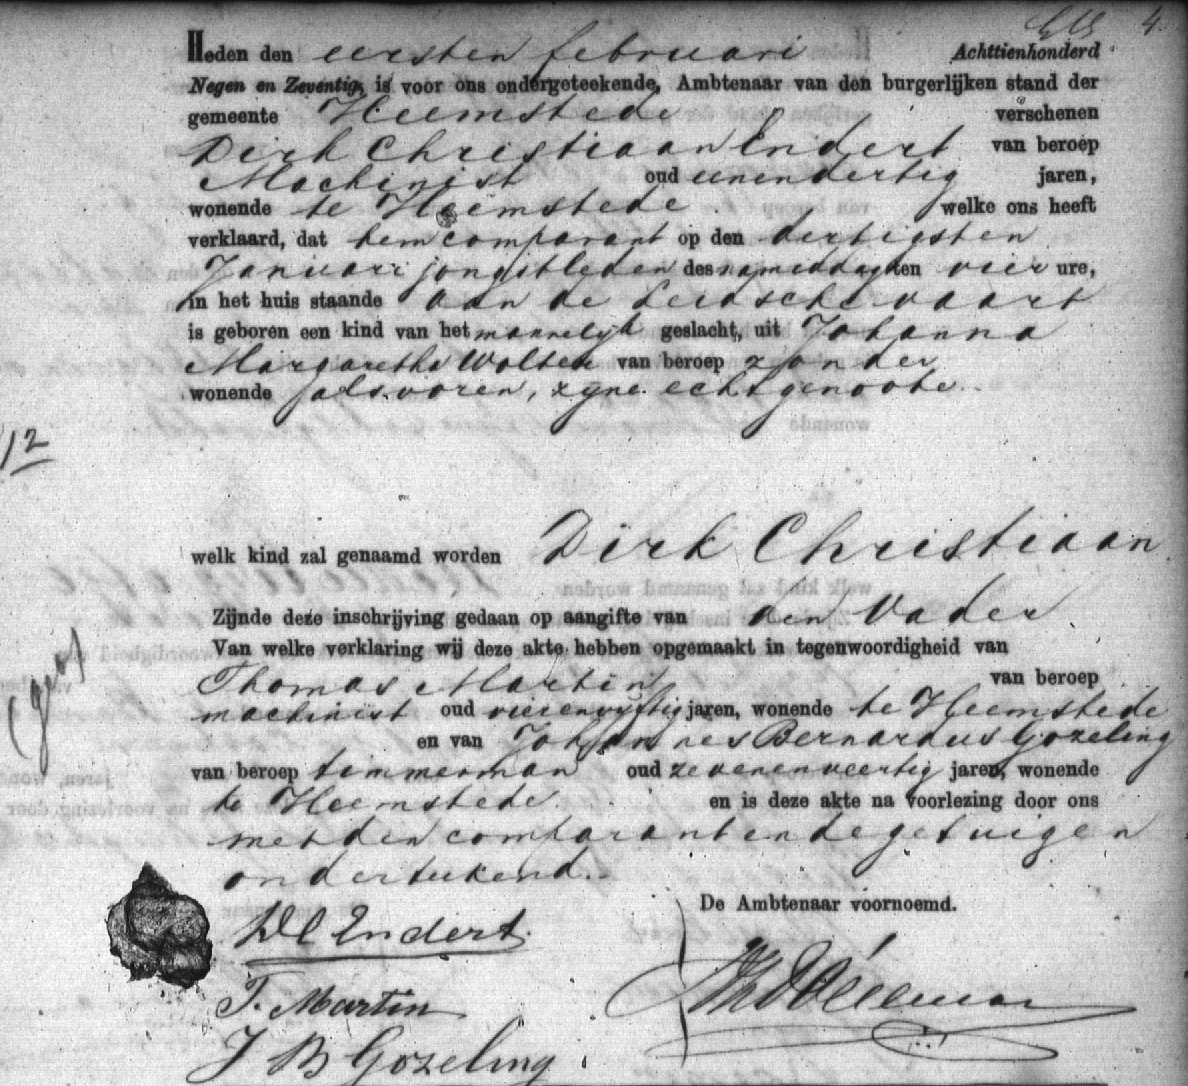 4.
Heden den eersten februari Achttienhonderd
Negen en Zeventig, is voor ons ondergeteekende, Ambtenaar van den burgerlijken stand der
gemeente Heemstede verschenen
Dirk Christiaan Endert van beroep
Machinist oud eenendertig jaren,
wonende te Heemstede. welke ons heeft
verklaard, dat hem comparant op den dertigsten
Januari jongstleden des namiddags ten vier ure,
in het huis staande aan de Leidschevaart
is geboren een kind van het mannelijk geslacht, uit Johanna
Margaretha Wolters van beroep zonder
wonende als voren, zyne echtgenoote.
12
welk kind zal genaamd worden Dirk Christiaan
Zijnde deze inschrijving gedaan op aangifte van den vader
Van welke verklaring wij deze akte hebben opgemaakt in tegenwoordigheid van
Thomas Martin van beroep
machinist oud vierenvyftig jaren, wonende te Heemstede
en van Johannes Bernardus Gozeling
van beroep timmerman oud zevenenveertig jaren, wonende
te Heemstede. en is deze akte na voorlezing door ons
met den comparant en de getuigen
onderteekend.
De Ambtenaar voornoemd.
DC Endert.
T. Martin
J B Gozeling